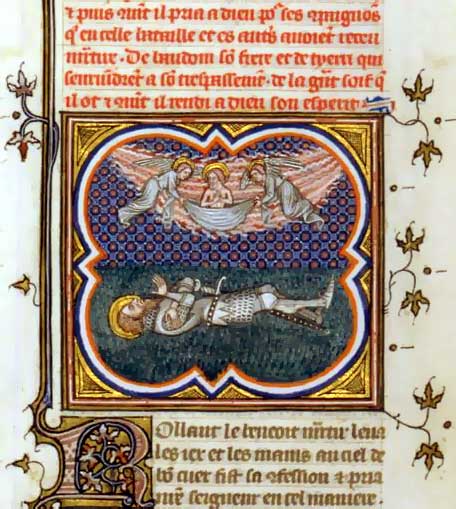 ⁊ puis ꝯmt il pria a dieu poᵉ ses ꝯpaignōs
q̄ en celle bataille et es autˢ auoient receu
martire. De baudoin sō frere et de tyerri qui
seuruindrēt a sō trespassemēt. de la grāt soif q̄
il ot ⁊ ꝯmt il rendi a dieu son esperit
Rollant le benoit martir leua
les iex et les mains au ciel de
bō cuer fist sa ꝯfession ⁊ pria
nr̄e seigneur en cel maniere.